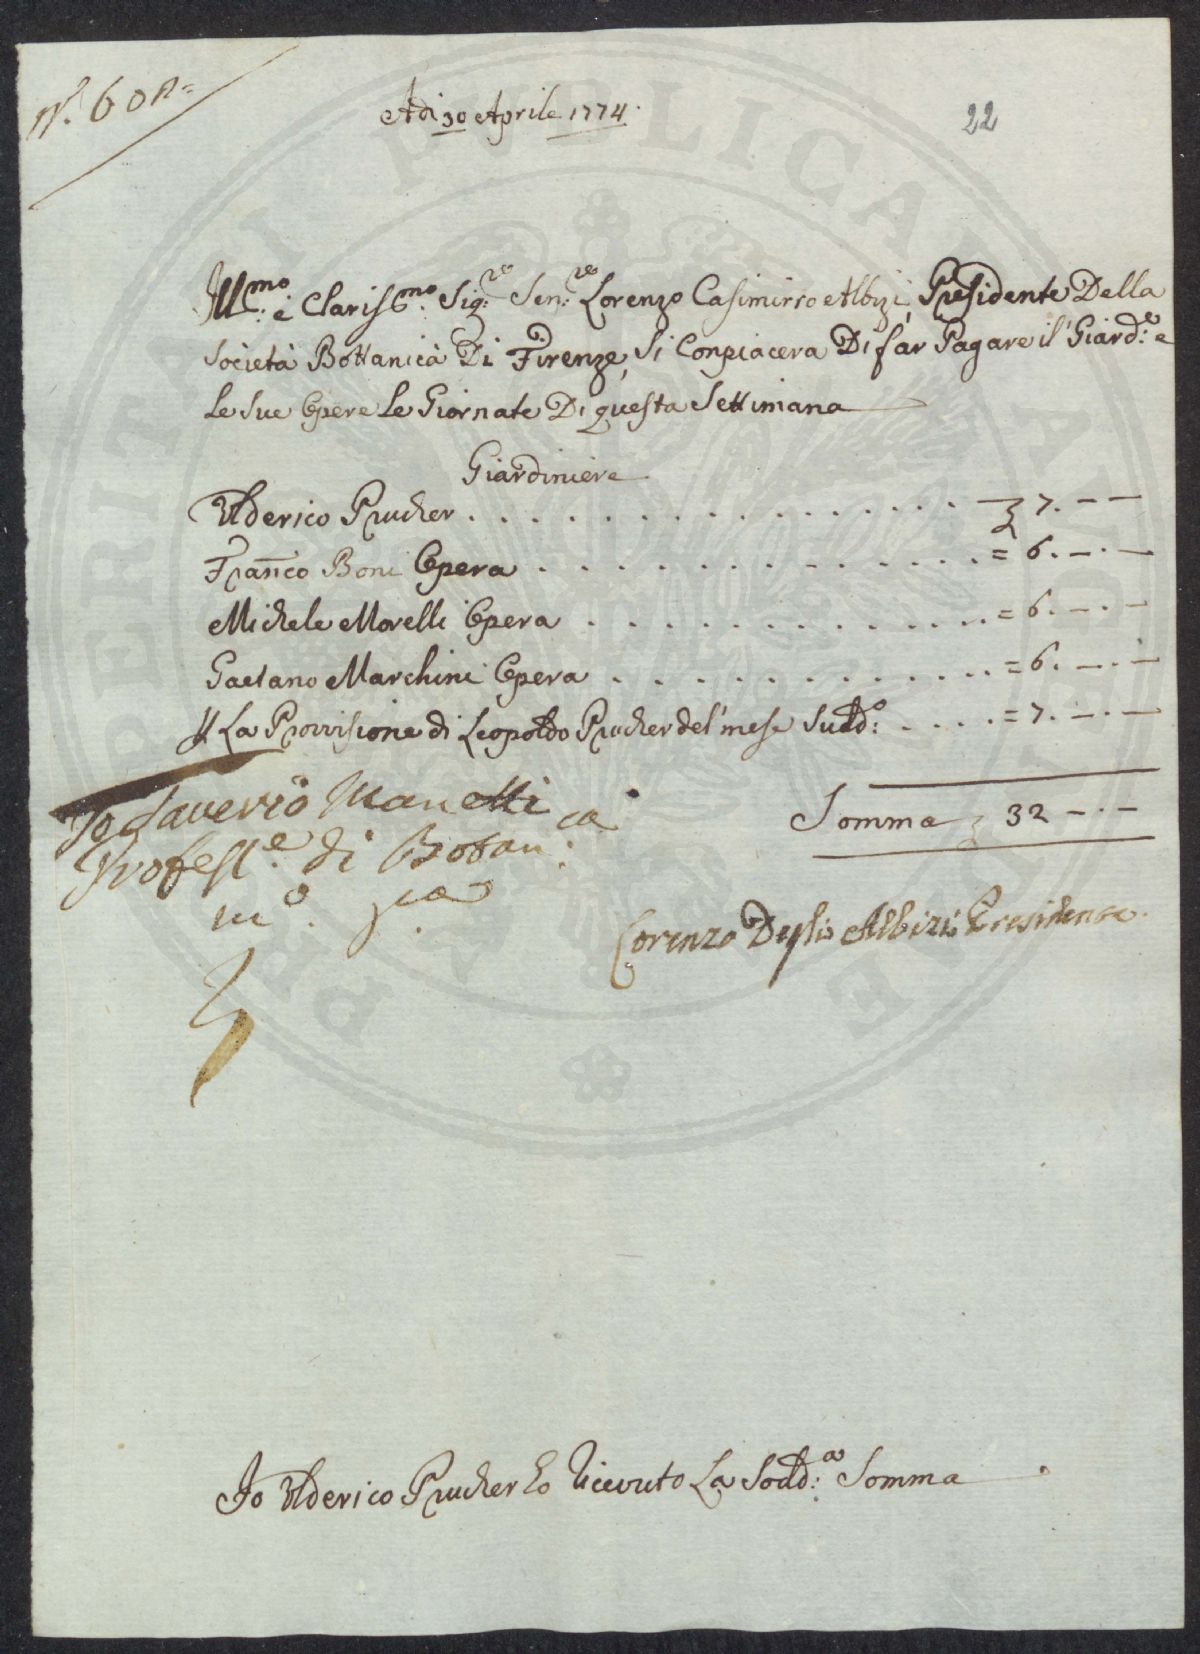 Adi 30 Aprile 1774.
22
Ill:mo e Clariss:mo Sig:re Sen:re Lorenzo Casimirro Albizi, Presidente Della
Società Bottanica Di Firenze, Si Conpiacera Di far Pagare il Giard:e e
Le Sue Opere Le Giornate Di questa Settimana
Giardiniere
Ulderico Prucher . . . . 7. — —
Fran̄co Boni Opera . . . . = 6. — . —
Michele Morelli Opera . . . . = 6. — . —
Gaetano Marchini Opera . . . . = 6. — . —
La Provisione di Leopoldo Prucher del mese Sudd:o . . . . = 7. — . —
Somma 32 — . —
Io Saverio Manetti
Profess:e di Botan:ca
m:o p:a
Lorenzo Degli Albizi Presidente.
Io Ulderico Prucher ho Ricevuto La Sodd:a Somma
PERITI PVBLICAE